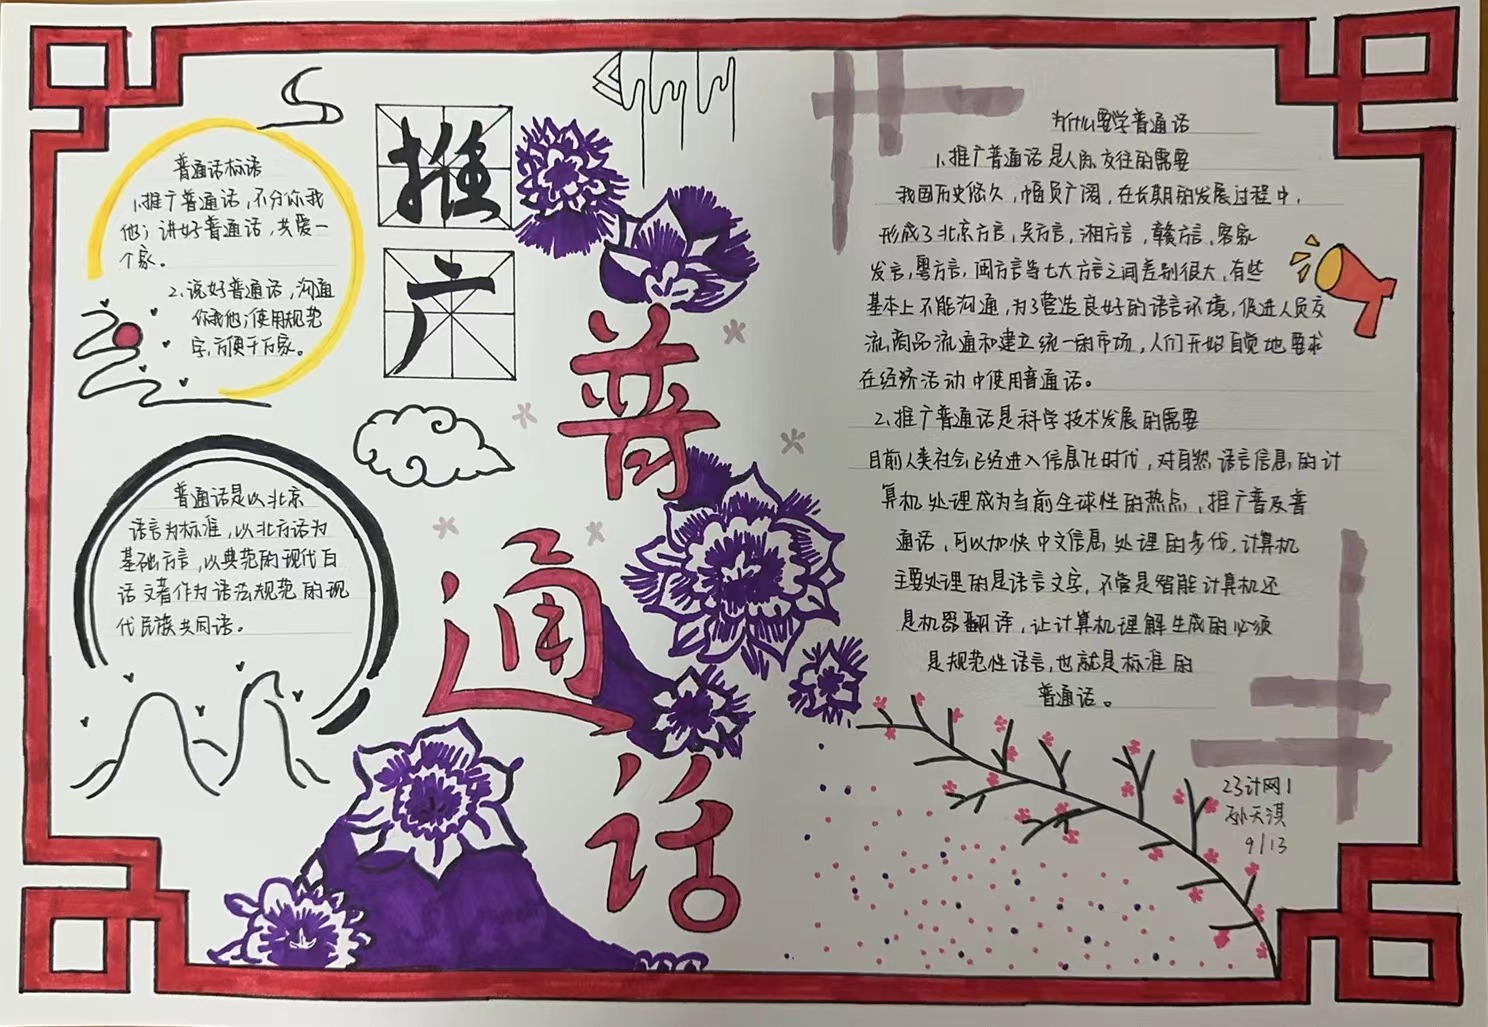 推
广
普
通
话
普通话标语
1.推广普通话,不分你我
他;讲好普通话,共爱一
个家。
2.说好普通话,沟通
你我他;使用规范
字,方便千万家。
普通话是以北京
语言为标准,以北方话为
基础方言,以典范的现代白
话文著作为语法规范的现
代民族共同语。
为什么要学普通话
1.推广普通话是人际交往的需要
我国历史悠久,幅员广阔,在长期的发展过程中,
形成了北京方言,吴方言,湘方言,赣方言,客家
发言,粤方言,闽方言等七大方言之间差别很大,有些
基本上不能沟通,为了营造良好的语言环境,促进人员交
流,商品流通和建立统一的市场,人们开始自觉地要求
在经济活动中使用普通话。
2.推广普通话是科学技术发展的需要
目前人类社会已经进入信息化时代,对自然语言信息的计
算机处理成为当前全球性的热点,推广普及普
通话,可以加快中文信息处理的步伐,计算机
主要处理的是语言文字,不管是智能计算机还
是机器翻译,让计算机理解生成的必须
是规范性语言,也就是标准的
普通话。
23计网1
孙天淇
9/13